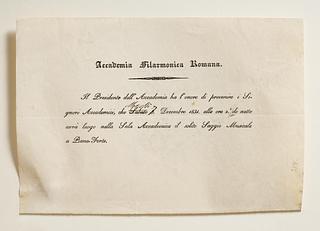 Accademia Filarmonica Romana.
Il Presidente dell' Accademia ha l'onore di prevenire i Si-
gnori Accademici, che Sabato 7. Decembre 1831. alle ore 2. di notte
avrà luogo nella Sala Accademica il solito Saggio Musicale
a Piano-Forte.